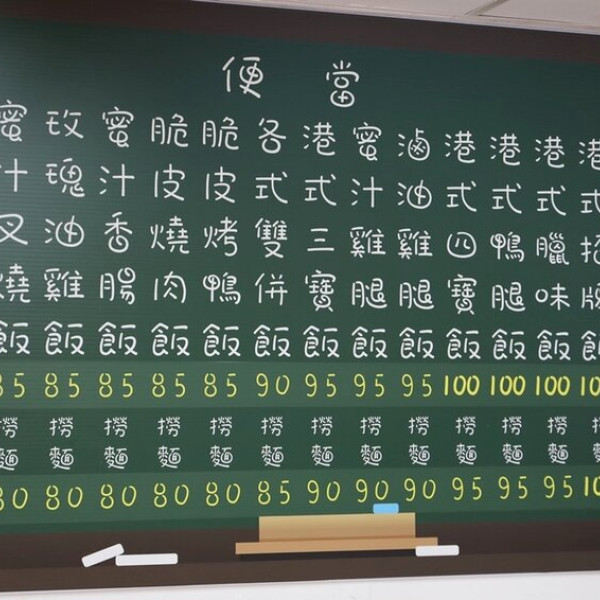 便當
蜜汁叉燒飯
85
撈麵
80
玫瑰油雞飯
85
撈麵
80
蜜汁香腸飯
85
撈麵
80
脆皮燒肉飯
85
撈麵
80
脆皮烤鴨飯
85
撈麵
80
各式雙併飯
90
撈麵
85
港式三寶飯
95
撈麵
90
蜜汁雞腿飯
95
撈麵
90
滷油雞腿飯
95
撈麵
90
港式四寶飯
100
撈麵
95
港式鴨腿飯
100
撈麵
95
港式臘味飯
100
撈麵
95
港式招牌飯
撈麵